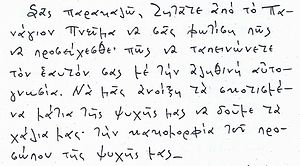 Σᾶς παρακαλῶ, ζητᾶτε ἀπό τό Πα-
νάγιον Πνεῦμα νά σᾶς φωτίση πῶς
νά προσεύχεσθε· πῶς νά ταπεινώνετε
τόν ἑαυτόν σας μέ τήν ἀληθινή αὐτο-
γνωσία. Νά μᾶς ἀνοίξη τά σκοτισμέ-
να μάτια τῆς ψυχῆς μας νά δοῦμε τά
χάλια μας· τήν κακομορφία τοῦ προ-
σώπου τῆς ψυχῆς μας_